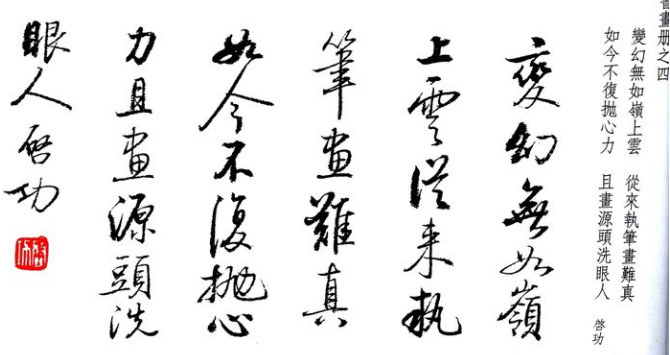 書畫册之四
變幻無如嶺上雲 從來執筆畫難真
如今不復抛心力 且畫源頭洗眼人 啓功
變幻無如嶺
上雲從来執
筆畫難真
如今不復抛心
力且畫源頭洗
眼人啓功